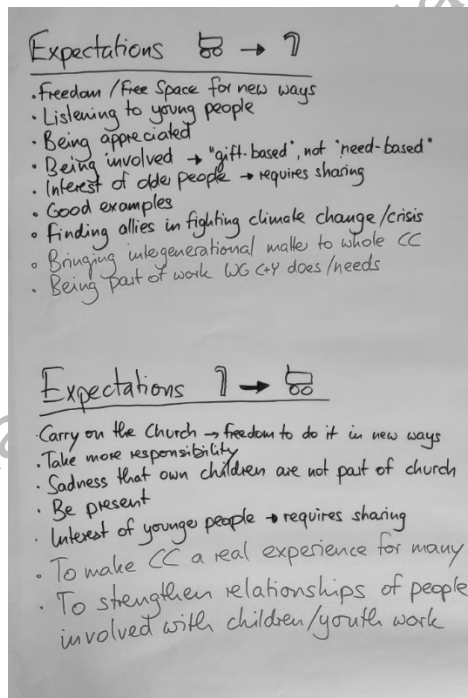 Expectations →
• Freedom / Free Space for new ways
• Listening to young people
• Being appreciated
• Being involved → "gift-based", not "need-based"
• Interest of older people → requires sharing
• Good examples
• Finding allies in fighting climate change/crisis
• Bringing intergenerational matter to whole CC
• Being part of work WG C+Y does/needs
Expectations →
• Carry on the Church → freedom to do it in new ways
• Take more responsibility
• Sadness that own children are not part of church
• Be present
• Interest of younger people → requires sharing
• To make CC a real experience for many
• To strengthen relationships of people
involved with children/youth work